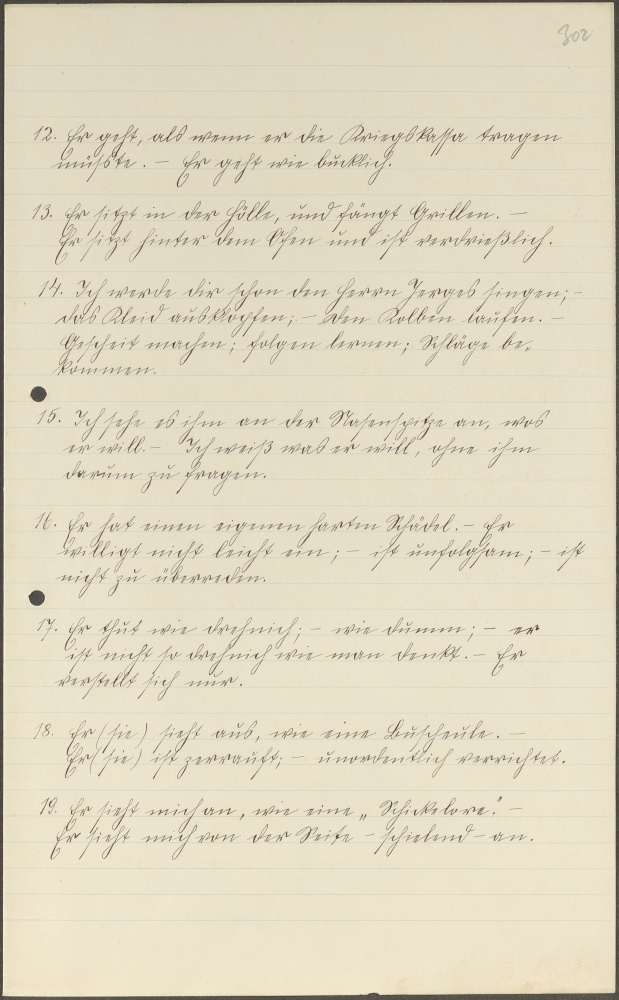 302
12. Er geht, als wenn er die Kriegskassa tragen
müsste. – Er geht wie bucklich.
13. Er sitzt in der Hölle, und fängt Grillen. –
Er sitzt hinter dem Ofen und ist verdrießlich.
14. Ich werde dir schon den Herrn Jerges singen; –
das Kleid ausklopfen; – den Kolben laufen. –
Gescheit machen; folgen lernen; Schläge be-
kommen.
15. Ich sehe es ihm an der Nasenspitze an, was
er will. – Ich weiß was er will, ohne ihm
darum zu fragen.
16. Er hat einen eigenen harten Schädel. – Er
willigt nicht leicht ein; – ist unfolgsam; – ist
nicht zu überreden.
17. Er thut wie drehnich; – wie dumm; – er
ist nicht so drehnich wie man denkt. – Er
verstellt sich nur.
18. Er (sie) sieht aus, wie eine Buscheule. –
Er (sie) ist zerrauft; – unordentlich verrichtet.
19. Er sieht mich an, wie eine „Schickelore". –
Er sieht mich von der Seite – schielend – an.